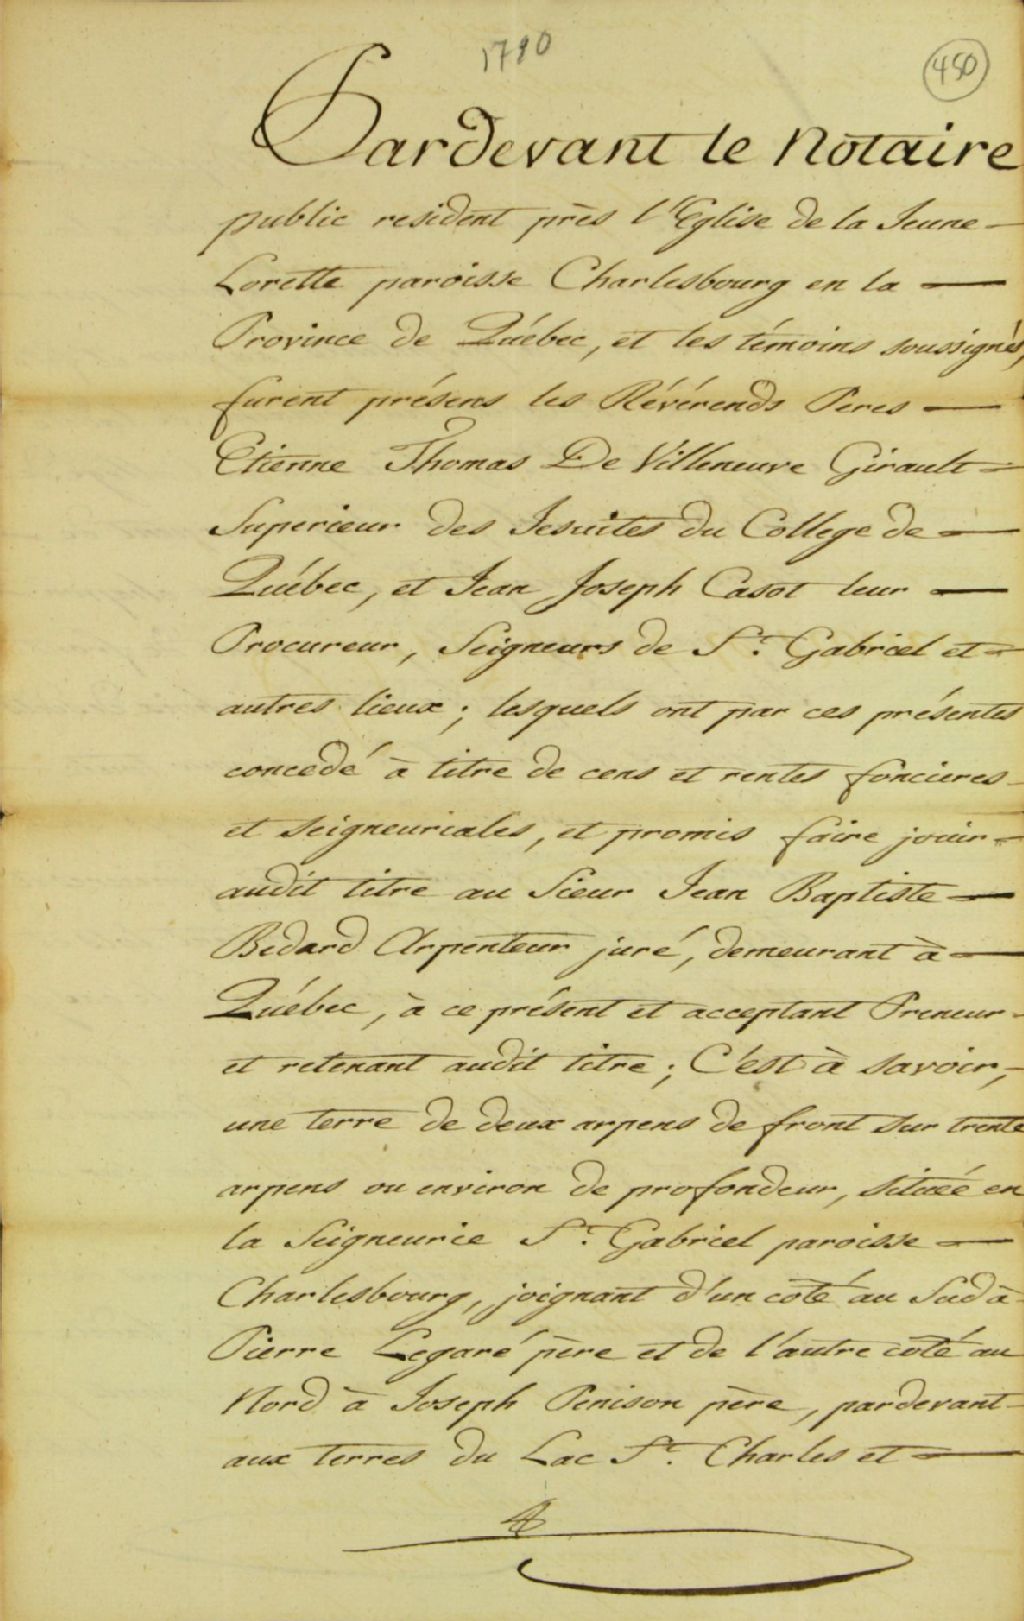 1790
450
Pardevant le Notaire
public resident près l'Eglise de la Jeune
Lorette paroisse Charlesbourg en la
Province de Québec, et les témoins soussignés,
furent présens les Révérends Peres
Etienne Thomas De Villeneuve Girault
Superieur des Jesuites du College de
Québec, et Jean Joseph Casot leur
Procureur, Seigneurs de St. Gabriel et
autres lieux; lesquels ont par ces présentes
concedé à titre de cens et rentes foncieres
et seigneuriales, et promis faire jouir
audit titre au Sieur Jean Baptiste
Bedard Arpenteur juré, demeurant à
Québec, à ce présent et acceptant Preneur
et retenant audit titre; C'est à savoir,
une terre de deux arpens de front sur trente
arpens ou environ de profondeur, située en
la Seigneurie St. Gabriel paroisse
Charlesbourg, joignant d'un coté au Sud à
Pierre Legaré père et de l'autre coté au
Nord à Joseph Penison père, pardevant
aux terres du Lac St. Charles et